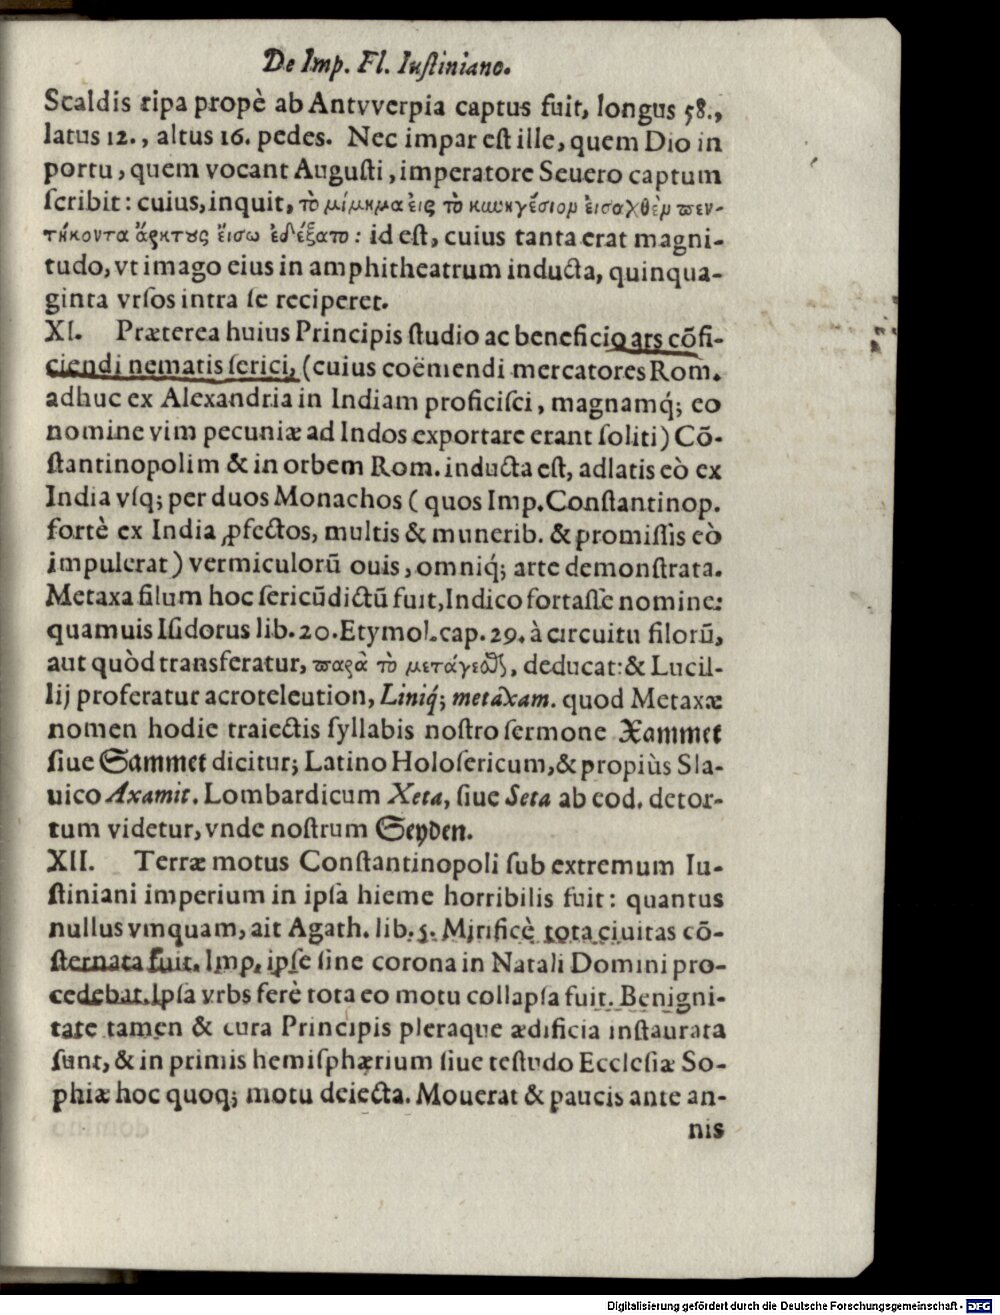 De Imp. Fl. Iustiniano.
Scaldis ripa propè ab Antvverpia captus fuit, longus 58.,
latus 12., altus 16. pedes. Nec impar est ille, quem Dio in
portu, quem vocant Augusti, imperatore Seuero captum
scribit: cuius, inquit, τὸ μίμημα εἰς τὸ κυνηγέσιον εἰσαχθὲν πεν-
τήκοντα ἄρκτους εἴσω ἐδέξατο: id est, cuius tanta erat magni-
tudo, vt imago eius in amphitheatrum inducta, quinqua-
ginta vrsos intra se reciperet.
XI. Præterea huius Principis studio ac beneficio ars cõfi-
ciendi nematis serici, (cuius coëmendi mercatores Rom.
adhuc ex Alexandria in Indiam proficisci, magnamq́; eo
nomine vim pecuniæ ad Indos exportare erant soliti) Cõ-
stantinopolim & in orbem Rom. inducta est, adlatis eò ex
India vsq; per duos Monachos ( quos Imp. Constantinop.
fortè ex India ꝓfectos, multis & munerib. & promissis eò
impulerat) vermiculorũ ouis, omniq́; arte demonstrata.
Metaxa filum hoc sericũ dictũ fuit, Indico fortasse nomine:
quamuis Isidorus lib. 20. Etymol. cap. 29. à circuitu filorũ,
aut quòd transferatur, παρὰ τὸ μετάγεσθαι, deducat: & Lucil-
lij proferatur acroteleution, Liniq́; metaxam. quod Metaxæ
nomen hodie traiectis syllabis nostro sermone Xammet
siue Sammet dicitur; Latino Holosericum, & propiùs Sla-
uico Axamit. Lombardicum Xeta, siue Seta ab eod. detor-
tum videtur, vnde nostrum Seyden.
XII. Terræ motus Constantinopoli sub extremum Iu-
stiniani imperium in ipsa hieme horribilis fuit: quantus
nullus vmquam, ait Agath. lib. 5. Mirificè tota ciuitas cõ-
sternata fuit. Imp. ipse sine corona in Natali Domini pro-
cedebat. Ipsa vrbs ferè tota eo motu collapsa fuit. Benigni-
tate tamen & cura Principis pleraque ædificia instaurata
sunt, & in primis hemisphærium siue testudo Ecclesiæ So-
phiæ hoc quoq; motu deiecta. Mouerat & paucis ante an-
nis
Digitalisierung gefördert durch die Deutsche Forschungsgemeinschaft - DFG